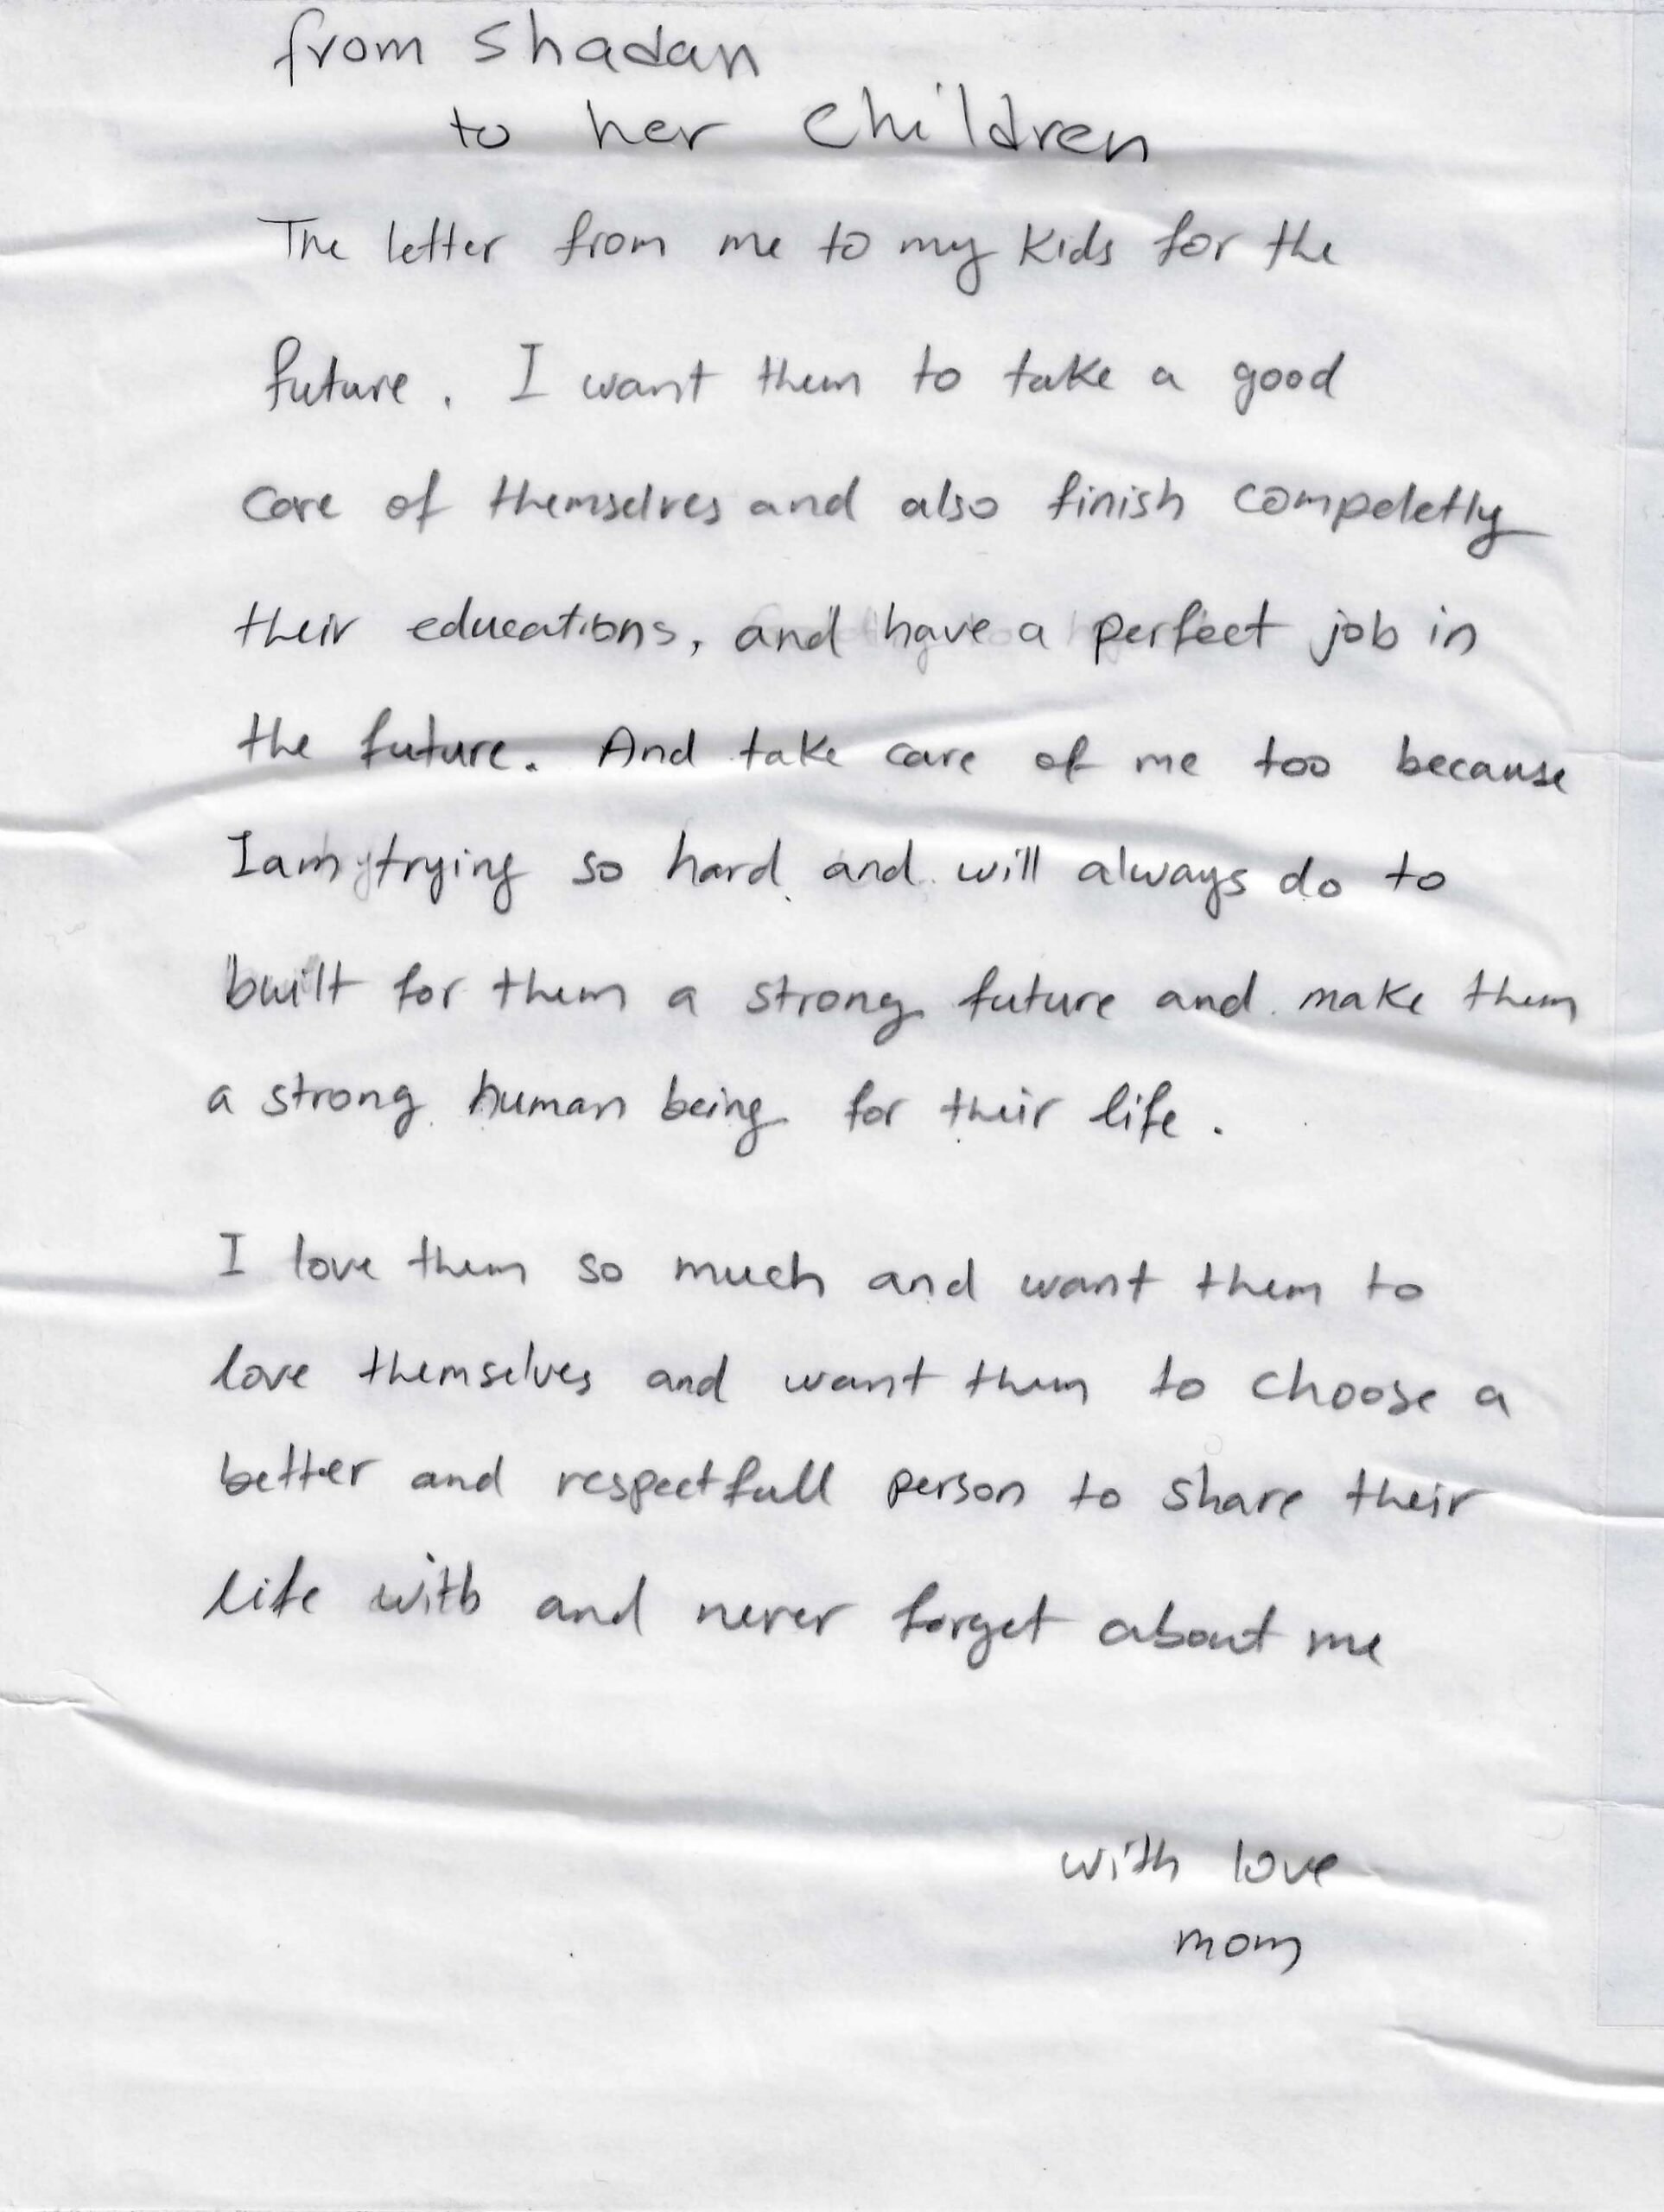 from shadan
to her children
The letter from me to my kids for the
future. I want them to take a good
care of themselves and also finish compeletly
their educations, and have a perfect job in
the future. And take care of me too because
I am trying so hard and will always do to
built for them a strong future and make them
a strong human being for their life.
I love them so much and want them to
love themselves and want them to choose a
better and respectfull person to share their
life with and never forget about me
with love
mom